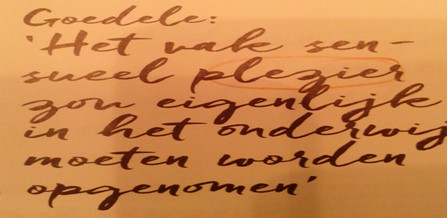 Goedele:
'Het vak sen-
sueel plezier
zou eigenlijk
in het onderwij
moeten worden
opgenomen'